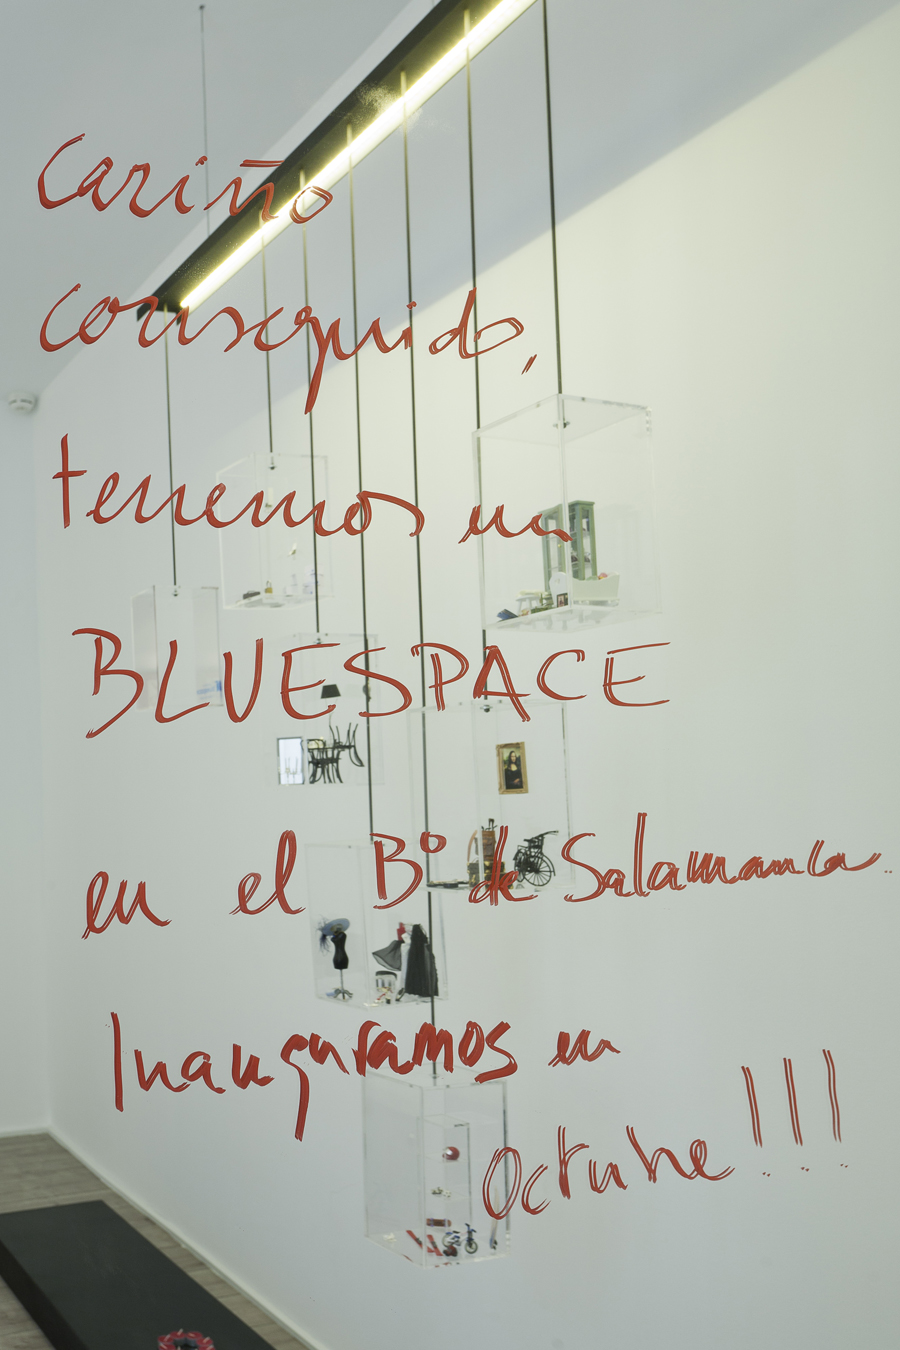 Cariño
conseguido,
tenemos un
BLUESPACE
en el Bº de Salamanca.
Inauguramos en
Octubre!!!